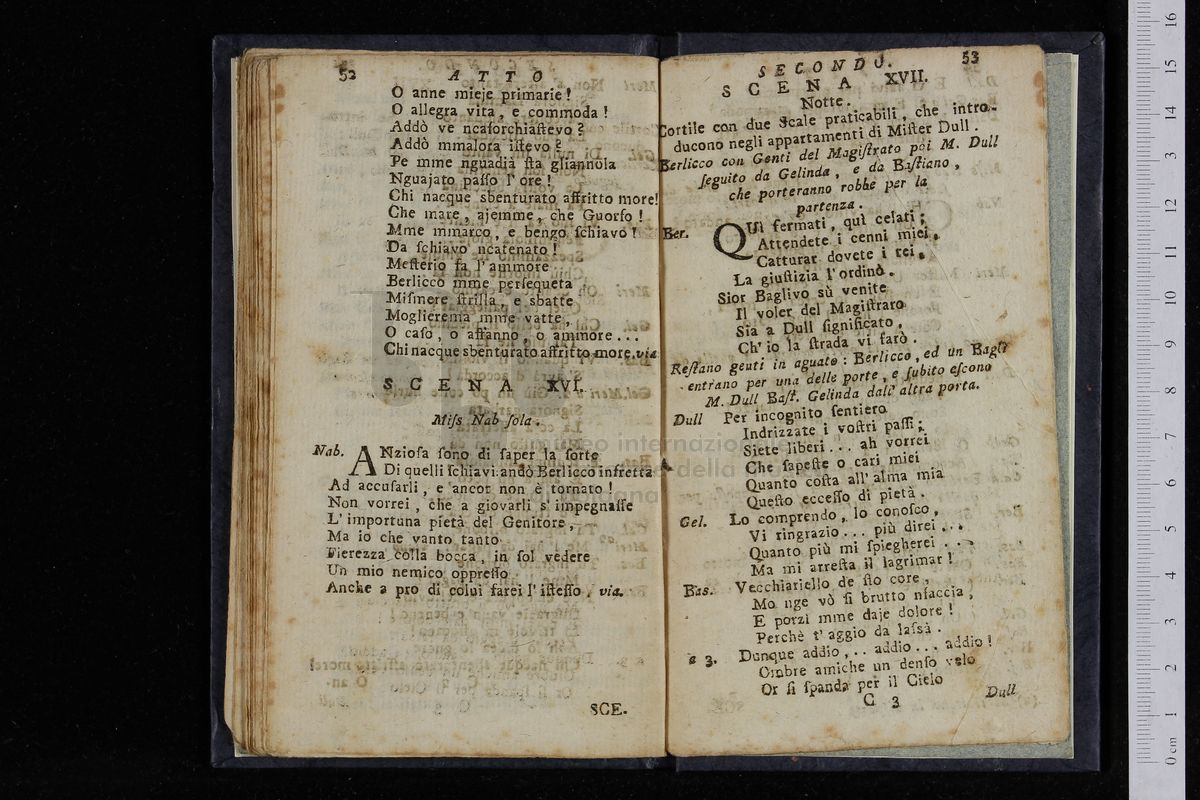 52 ATTO
O anne mieje primarie!
O allegra vita, e commoda!
Addò ve ncaforchiaſtevo?
Addò mmalora iſtevo?
Pe mme nguadià ſta gliannola
Nguajato paſſo l'ore!
Chi nacque sbenturato affritto more!
Che mare, ajemme, che Guorfo!
Mme mmarco, e bengo ſchiavo!
Da ſchiavo ncatenato!
Meſterio fa l'ammore
Berlicco mme perſequeta
Miſmere ſtriſla, e sbatte
Moglierema mme vatte,
O caſo, o affanno, o ammore...
Chi nacque sbenturato affritto more. via
SCENA XVI.
Miſs Nab ſola.
Nab. ANzioſa ſono di ſaper la ſorte
Di quelli ſchiavi: andò Berlicco infretta
Ad accuſarli, e ancor non è tornato!
Non vorrei, che a giovarli s'impegnaſſe
L'importuna pietà del Genitore,
Ma io che vanto tanto
Fierezza colla bocca, in ſol vedere
Un mio nemico oppreſſo
Anche a pro di colui farei l'iſteſſo. via.
SCE.
SECONDO. 53
SCENA XVII.
Notte.
Cortile con due Scale praticabili, che intro-
ducono negli appartamenti di Miſter Dull.
Berlicco con Genti del Magiſtrato poi M. Dull
ſeguito da Gelinda, e da Baſtiano,
che porteranno robbe per la
partenza.
Ber. QUì fermati, quì celati;
Attendete i cenni miei.
Catturar dovete i rei.
La giuſtizia l'ordinò.
Sior Baglivo sù venite
Il voler del Magiſtrato
Sia a Dull ſignificato,
Ch'io la ſtrada vi farò.
Reſtano genti in aguato: Berlicco, ed un Bagli
entrano per una delle porte, e ſubito eſcono
M. Dull Baſt. Gelinda dall'altra porta.
Dull Per incognito ſentiero
Indrizzate i voſtri paſſi;
Siete liberi... ah vorrei
Che ſapeſte o cari miei
Quanto coſta all'alma mia
Queſto ecceſſo di pietà.
Gel. Lo comprendo, lo conoſco,
Vi ringrazio... più direi...
Quanto più mi ſpiegherei...
Ma mi arreſta il lagrimar!
Bas. Vecchiariello de ſto core,
Mo nge vò ſi brutto nfaccia,
E porzì mme daje dolore!
Perchè t'aggio da laſsà.
a 3. Dunque addio,.. addio... addio!
Ombre amiche un denſo velo
Or ſi ſpanda per il Cielo
C 3 Dull